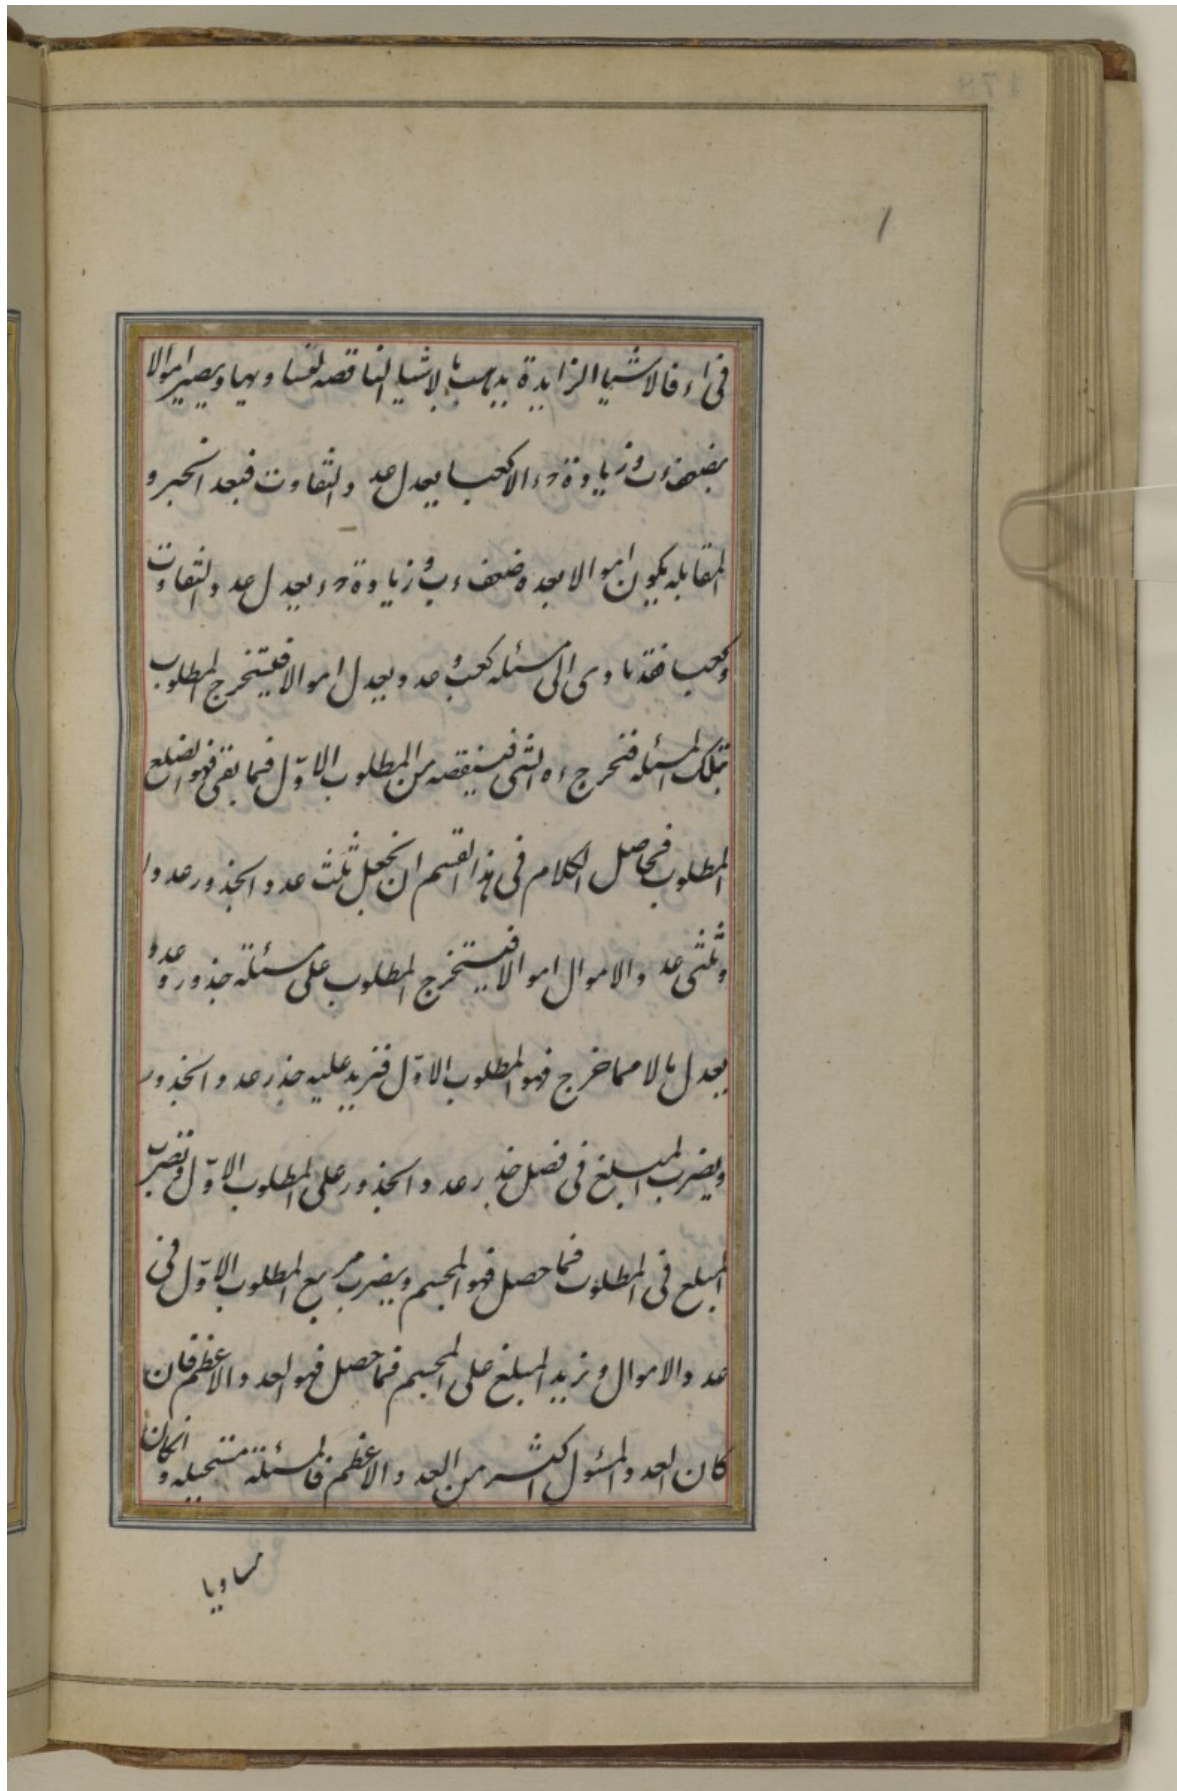 فى ٔا ء فالاشيا الزايدة يذهب بالاشيا الناقصه لتساويهما و يصير اموالا
بضعف ء ب و زيادة د ء الا كعبا يعدل عدد التفاوت فبعد الجبر و
المقابله يكون اموالا بعدة ضعف ء ب و زيادة د ء يعدل عدد التفاوت
و كعبا فقد تادى الى مسئله كعب و عدد يعدل اموالا فيستخرج المطلوب
بتلك المسئله فتخرج ء ه الشى فينقصه من المطلوب الاوّل فما بقى فهو الضلع
المطلوب فحاصل الكلام فى هذا القسم ان نجعل ثلث عدد الجذور عددا
و ثلثى عدد الاموال اموالا فيستخرج المطلوب على مسئلة جذور و عدد
يعدل مالا فما خرج فهو المطلوب الاوّل فنزيد عليه جذر عدد الجذور
و يضرب المبلغ فى فضل جذر عدد الجذور على المطلوب الاوّل و نضرب
المبلغ فى المطلوب فما حصل فهو المجسم و يضرب مربع المطلوب الاوّل فى
عدد الاموال و نزيد المبلغ على المجسم فما حصل فهو العدد الاعظم فان
كان العدد المسئول اكثر من العدد الاعظم فالمسئلة مستحيله و انكان
مساويا